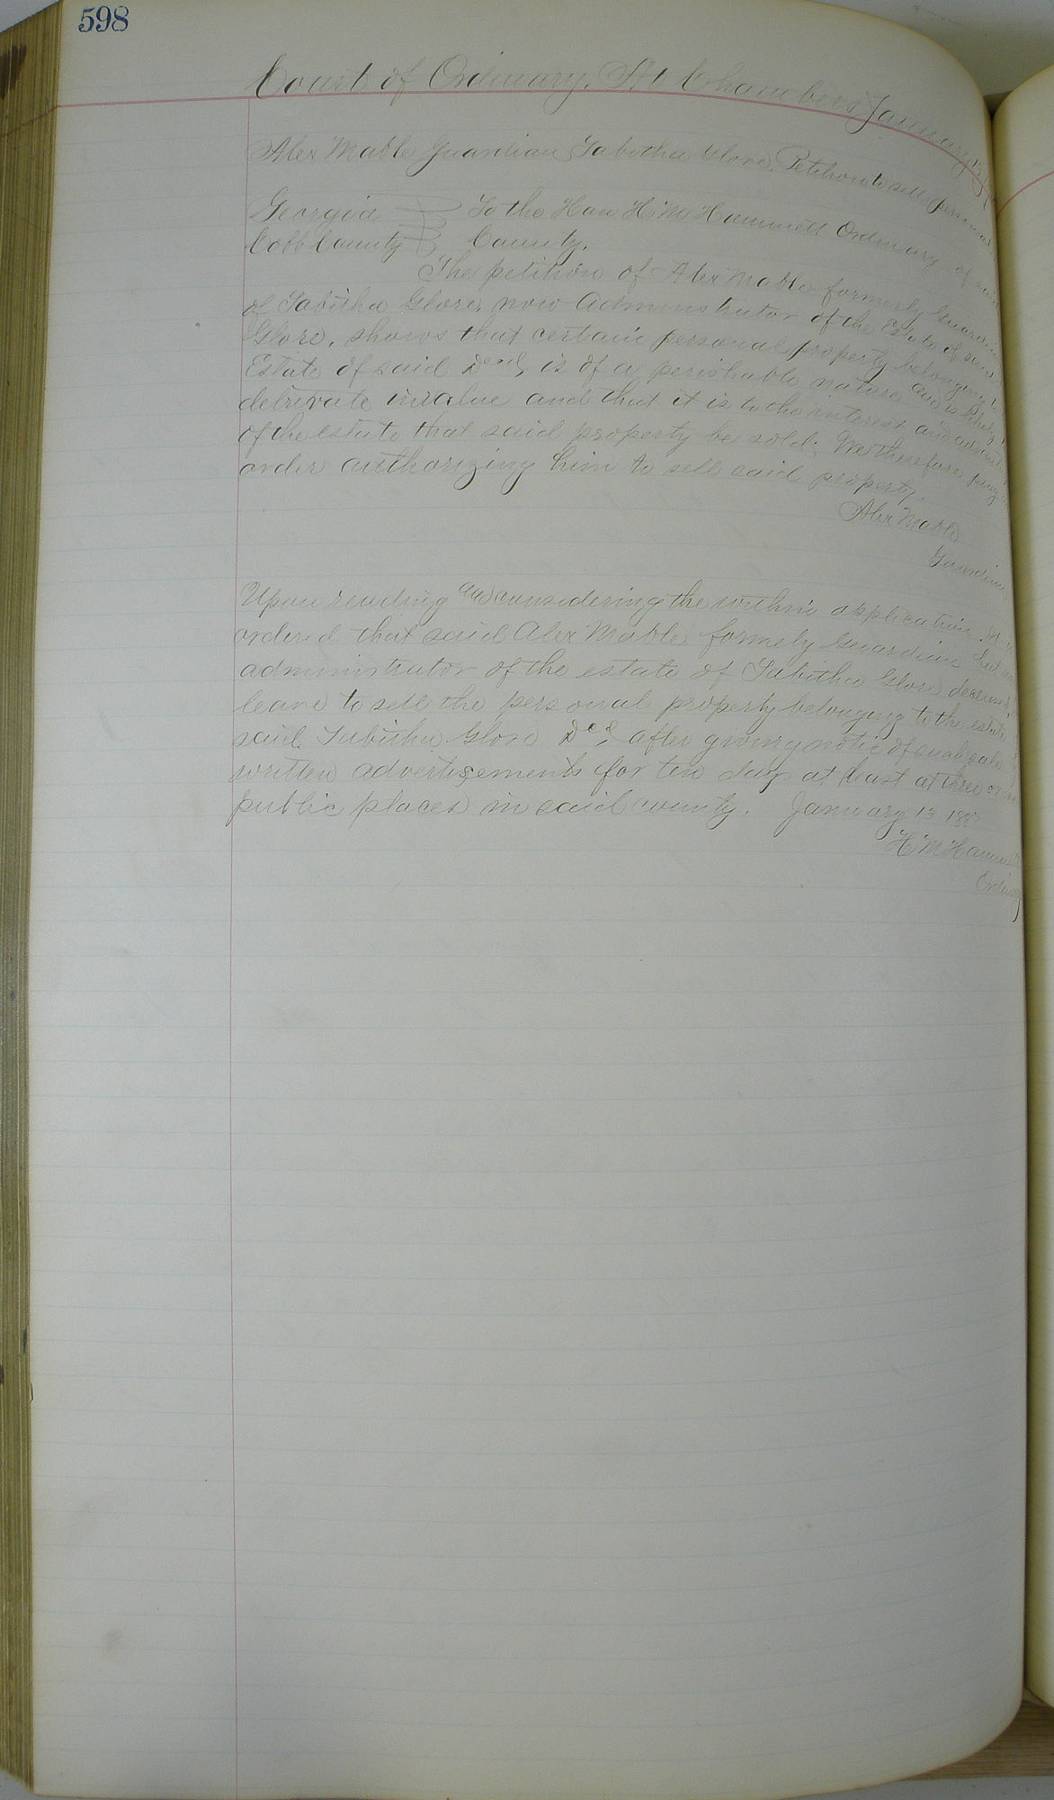 598
Court of Ordinary, At Chambers January 13
Alex Mable Guardian Tabitha Glore, Petition to sell personal
Georgia To the Hon H M Hammett Ordinary of said
Cobb County County.
The petition of Alex Mable formerly Guardian
of Tabitha Glore, now Administrator of the Estate of said
Glore, shows that certain personal property belonging to
Estate of said Decd, is of a perishable nature and is likely
detirrate in value and that it is to the interest and
of the estate that said property be sold; He therefore prays
order authorizing him to sell said property.
Alex Mable
Guardian
Upon reading and considering the within application, it is
ordered that said Alex Mable formely Guardian but
administrator of the estate of Tabitha Glore deceased
leave to sell the personal property belonging to the estate
said Tabitha Glore Decd, after giving notice of such sale
written advertisements for ten days at least at three or
public places in said county. January 13
H M Hammett
Ordinary